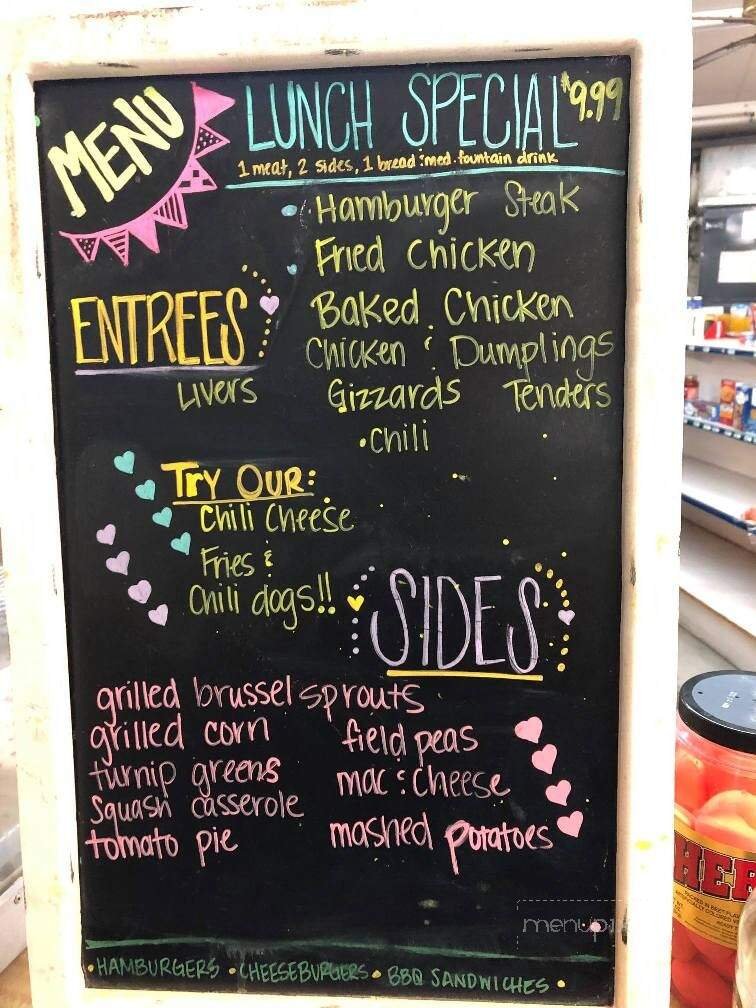 MENU
LUNCH SPECIAL $9.99
1 meat, 2 sides, 1 bread & med. fountain drink
• Hamburger Steak
• Fried Chicken
ENTREES
Baked Chicken
Chicken & Dumplings
Livers Gizzards Tenders
• Chili
Try Our:
Chili Cheese
Fries &
Chili dogs!!
SIDES
grilled brussel sprouts
grilled corn
field peas
turnip greens
mac & Cheese
Squash casserole
tomato pie
mashed potatoes
• HAMBURGERS • CHEESEBURGERS • BBQ SANDWICHES •
menupix
HER